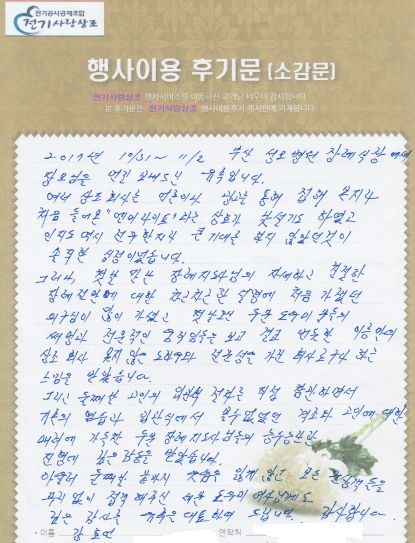 전기공사공제조합
전기사랑상조
행사이용 후기문 (소감문)
전기사랑상조 행사서비스를 이용하신 고객님 너무나 감사합니다
본 후기문은 전기사랑상조 행사이용후기 게시판에 기재됩니다
2017년 10/31~11/2 부산 성모병원 장례식장에서
장모님을 먼길 보내드린 유족입니다.
여러 상조 회사는 언론이나 광고를 통해 접해 온지라
처음 들어본 라는 상호가 낯설기도 하였고
인지도 역시 전무한지라 큰 기대를 하지 않았던것이
솔직한 심정이었습니다.
그러나, 첫날 만난 장례지도사님의 자세하고 친절한
장례전반에 대한 차근차근한 설명에 처음 가졌던
의구심이 많이 가셨고 도우미분들의
전문적인 움직임들을 보고 결코 이름만의
상조 회사 못지 않은 노하우와 전문성을 가진 회사로구나 라는
느낌을 받았습니다.
그리고 둘째날 고인의 입관식 절차를 직접 참관하면서
기존의 입관식에서 볼수 없었던 격조와 고인에 대한
배려에 가득찬 두분 장례지도사님들의
진행에 깊은 감동을 받았습니다.
아울러 끝까지 웃음을 잃지 않고 모든 손님들을
무리 없이 접객 해주신 도우미 여사님께도
깊은 감사를 유족을 대표하여 드립니다. 감사합니다.
• 이름 강
연락처